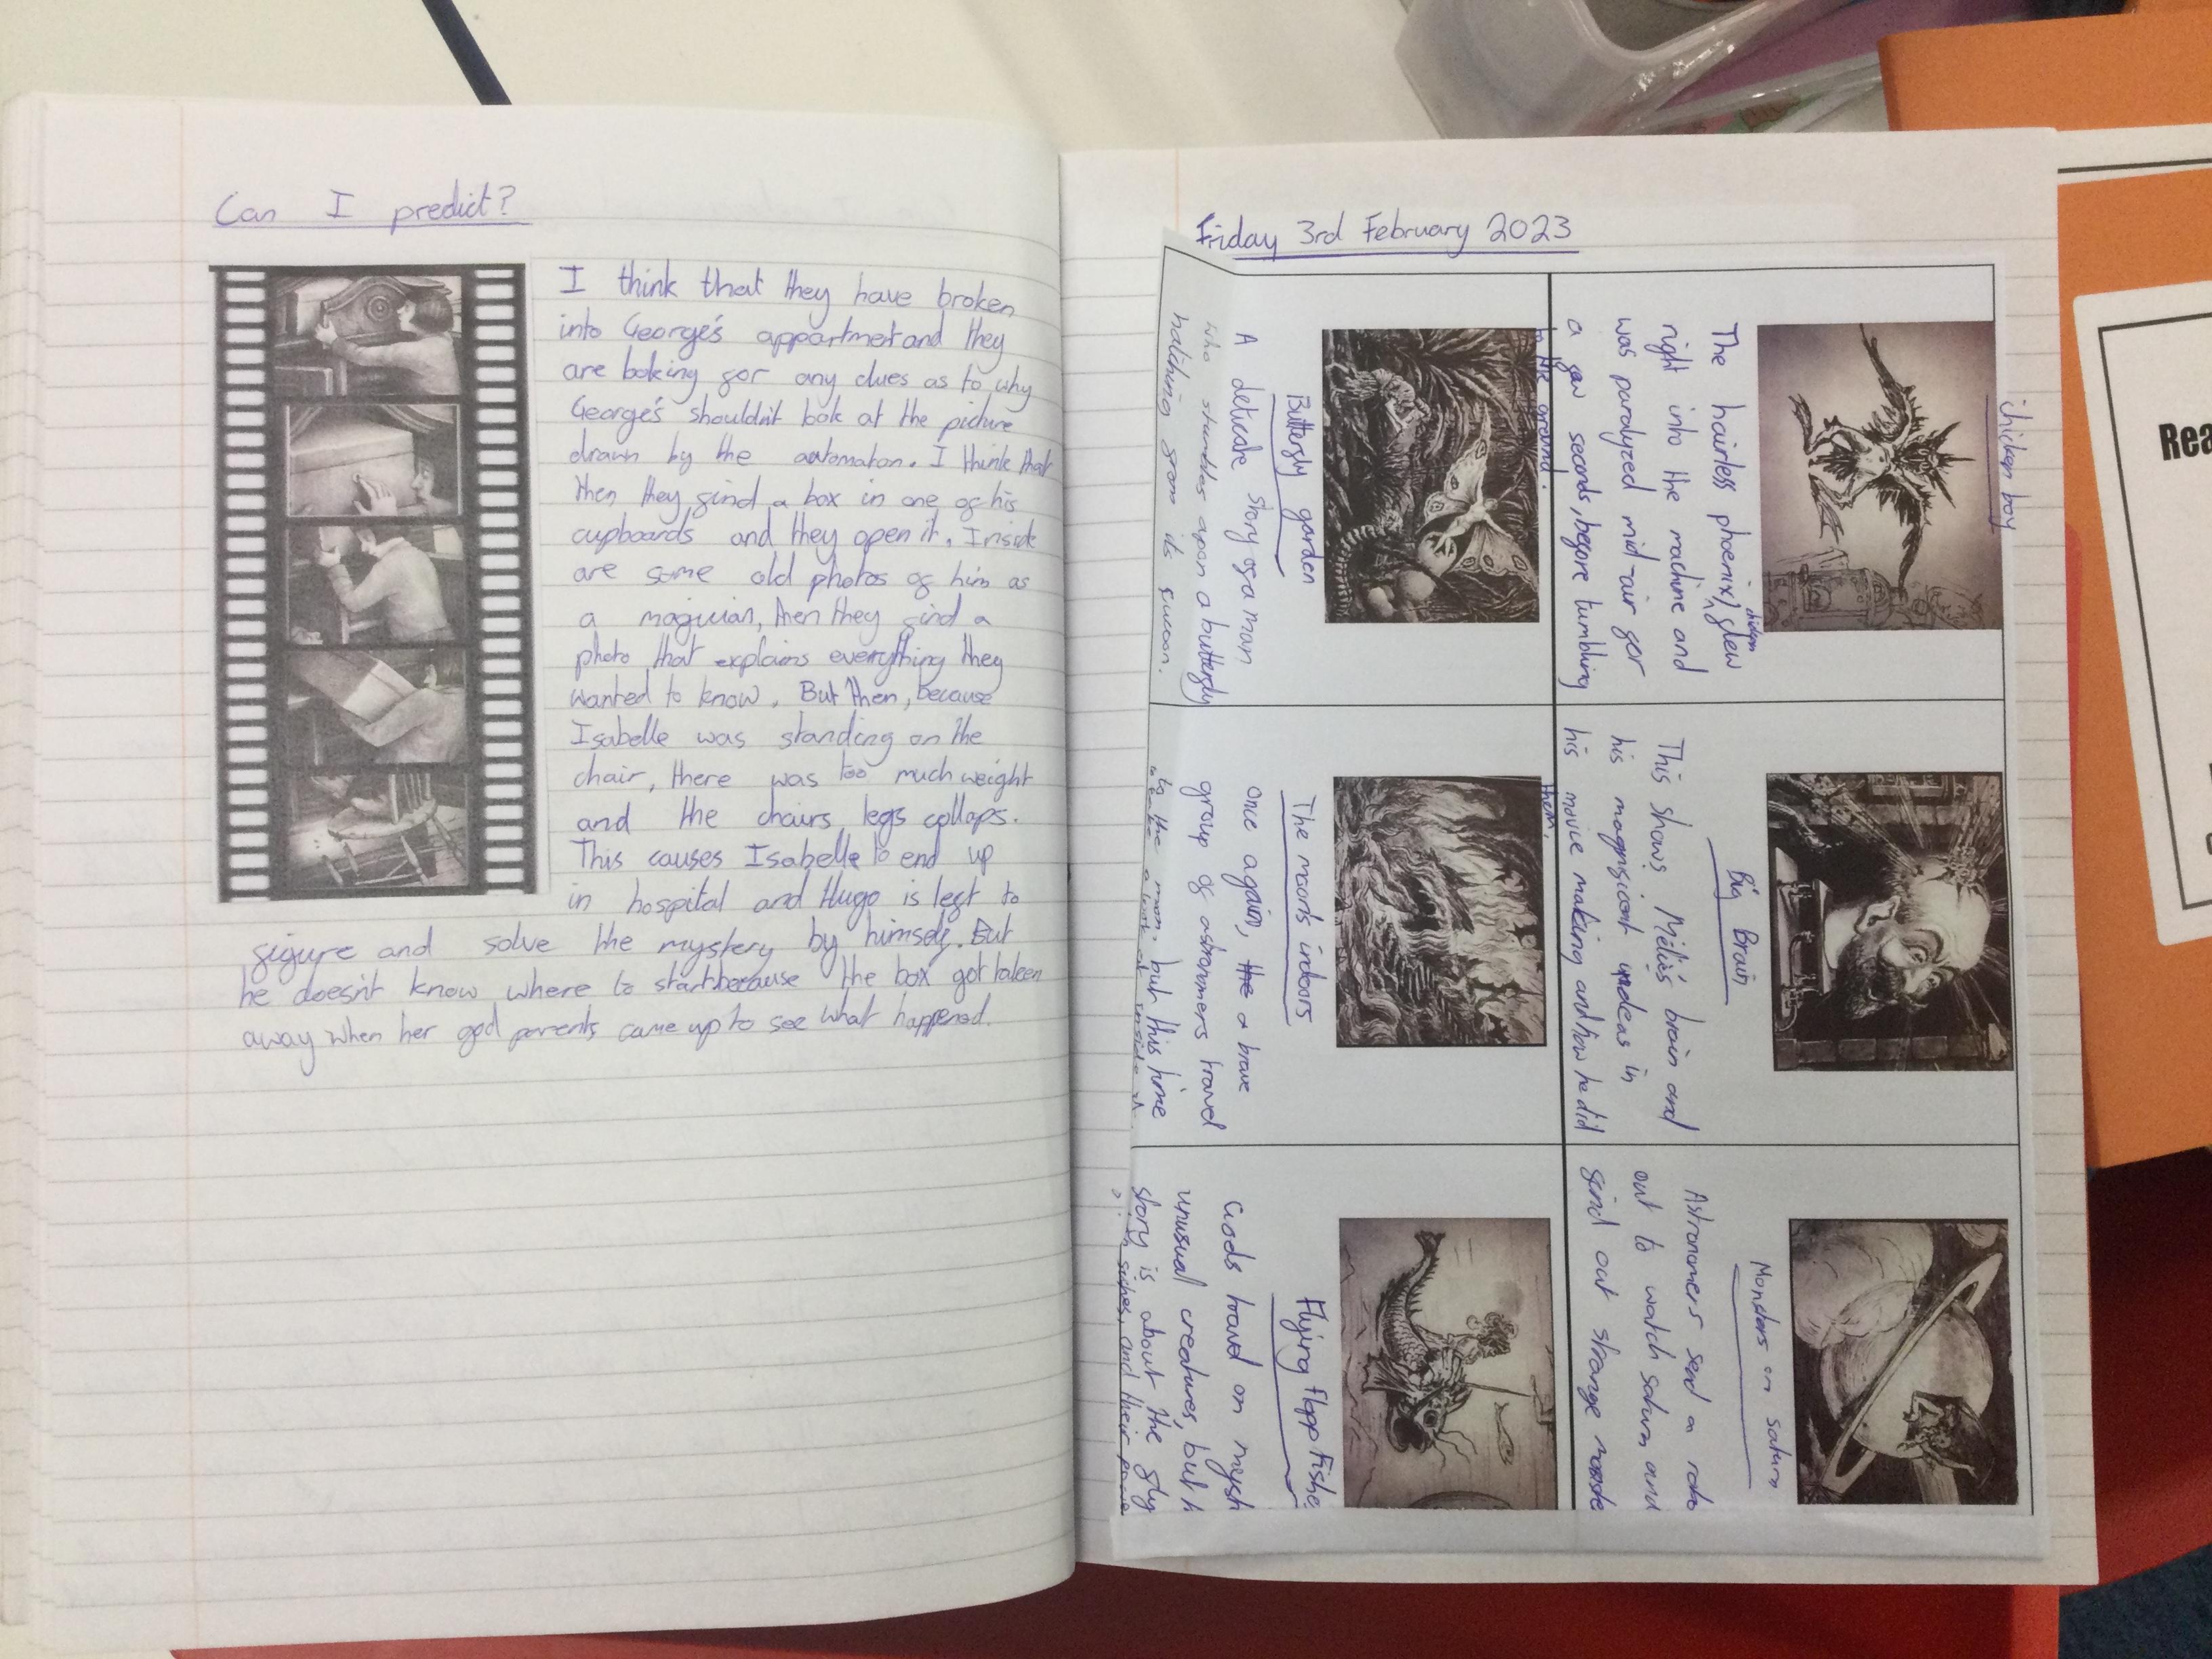 Can I predict?
I think that they have broken
into George's appartment and they
are looking for any clues as to why
George's shouldn't look at the picture
drawn by the automaton. I think that
then they find a box in one of his
cupboards and they open it. Inside
are some old photos of him as
a magician, then they find a
photo that explains everything they
wanted to know. But then, because
Isabelle was standing on the
chair, there was too much weight
and the chairs legs collaps.
This causes Isabelle to end up
in hospital and Hugo is left to
figure and solve the mystery by himself. But
he doesn't know where to start because the box got taken
away when her god parents came up to see what happened.
Friday 3rd February 2023
chicken boy
The hairless phoenix/chicken flew
right into the machine and
was paralyzed mid-air for
a few seconds, before tumbling
to the ground.
Big Brain
This shows Méliès brain and
his magnificent ideas in
his movie making and how he did
them.
Monsters on saturn
Astronomers send a
out to watch saturn and
find out strange
Butterfly garden
A delicate story of a man
who stumbles apon a butterfly
hatching from its
The moon's indoors
Once again, the a brave
group of astronomers travel
to the moon. but this time
Flying Flopp
Gods travel on
unusual creatures, but
story is about the
fishes, and their
Rea